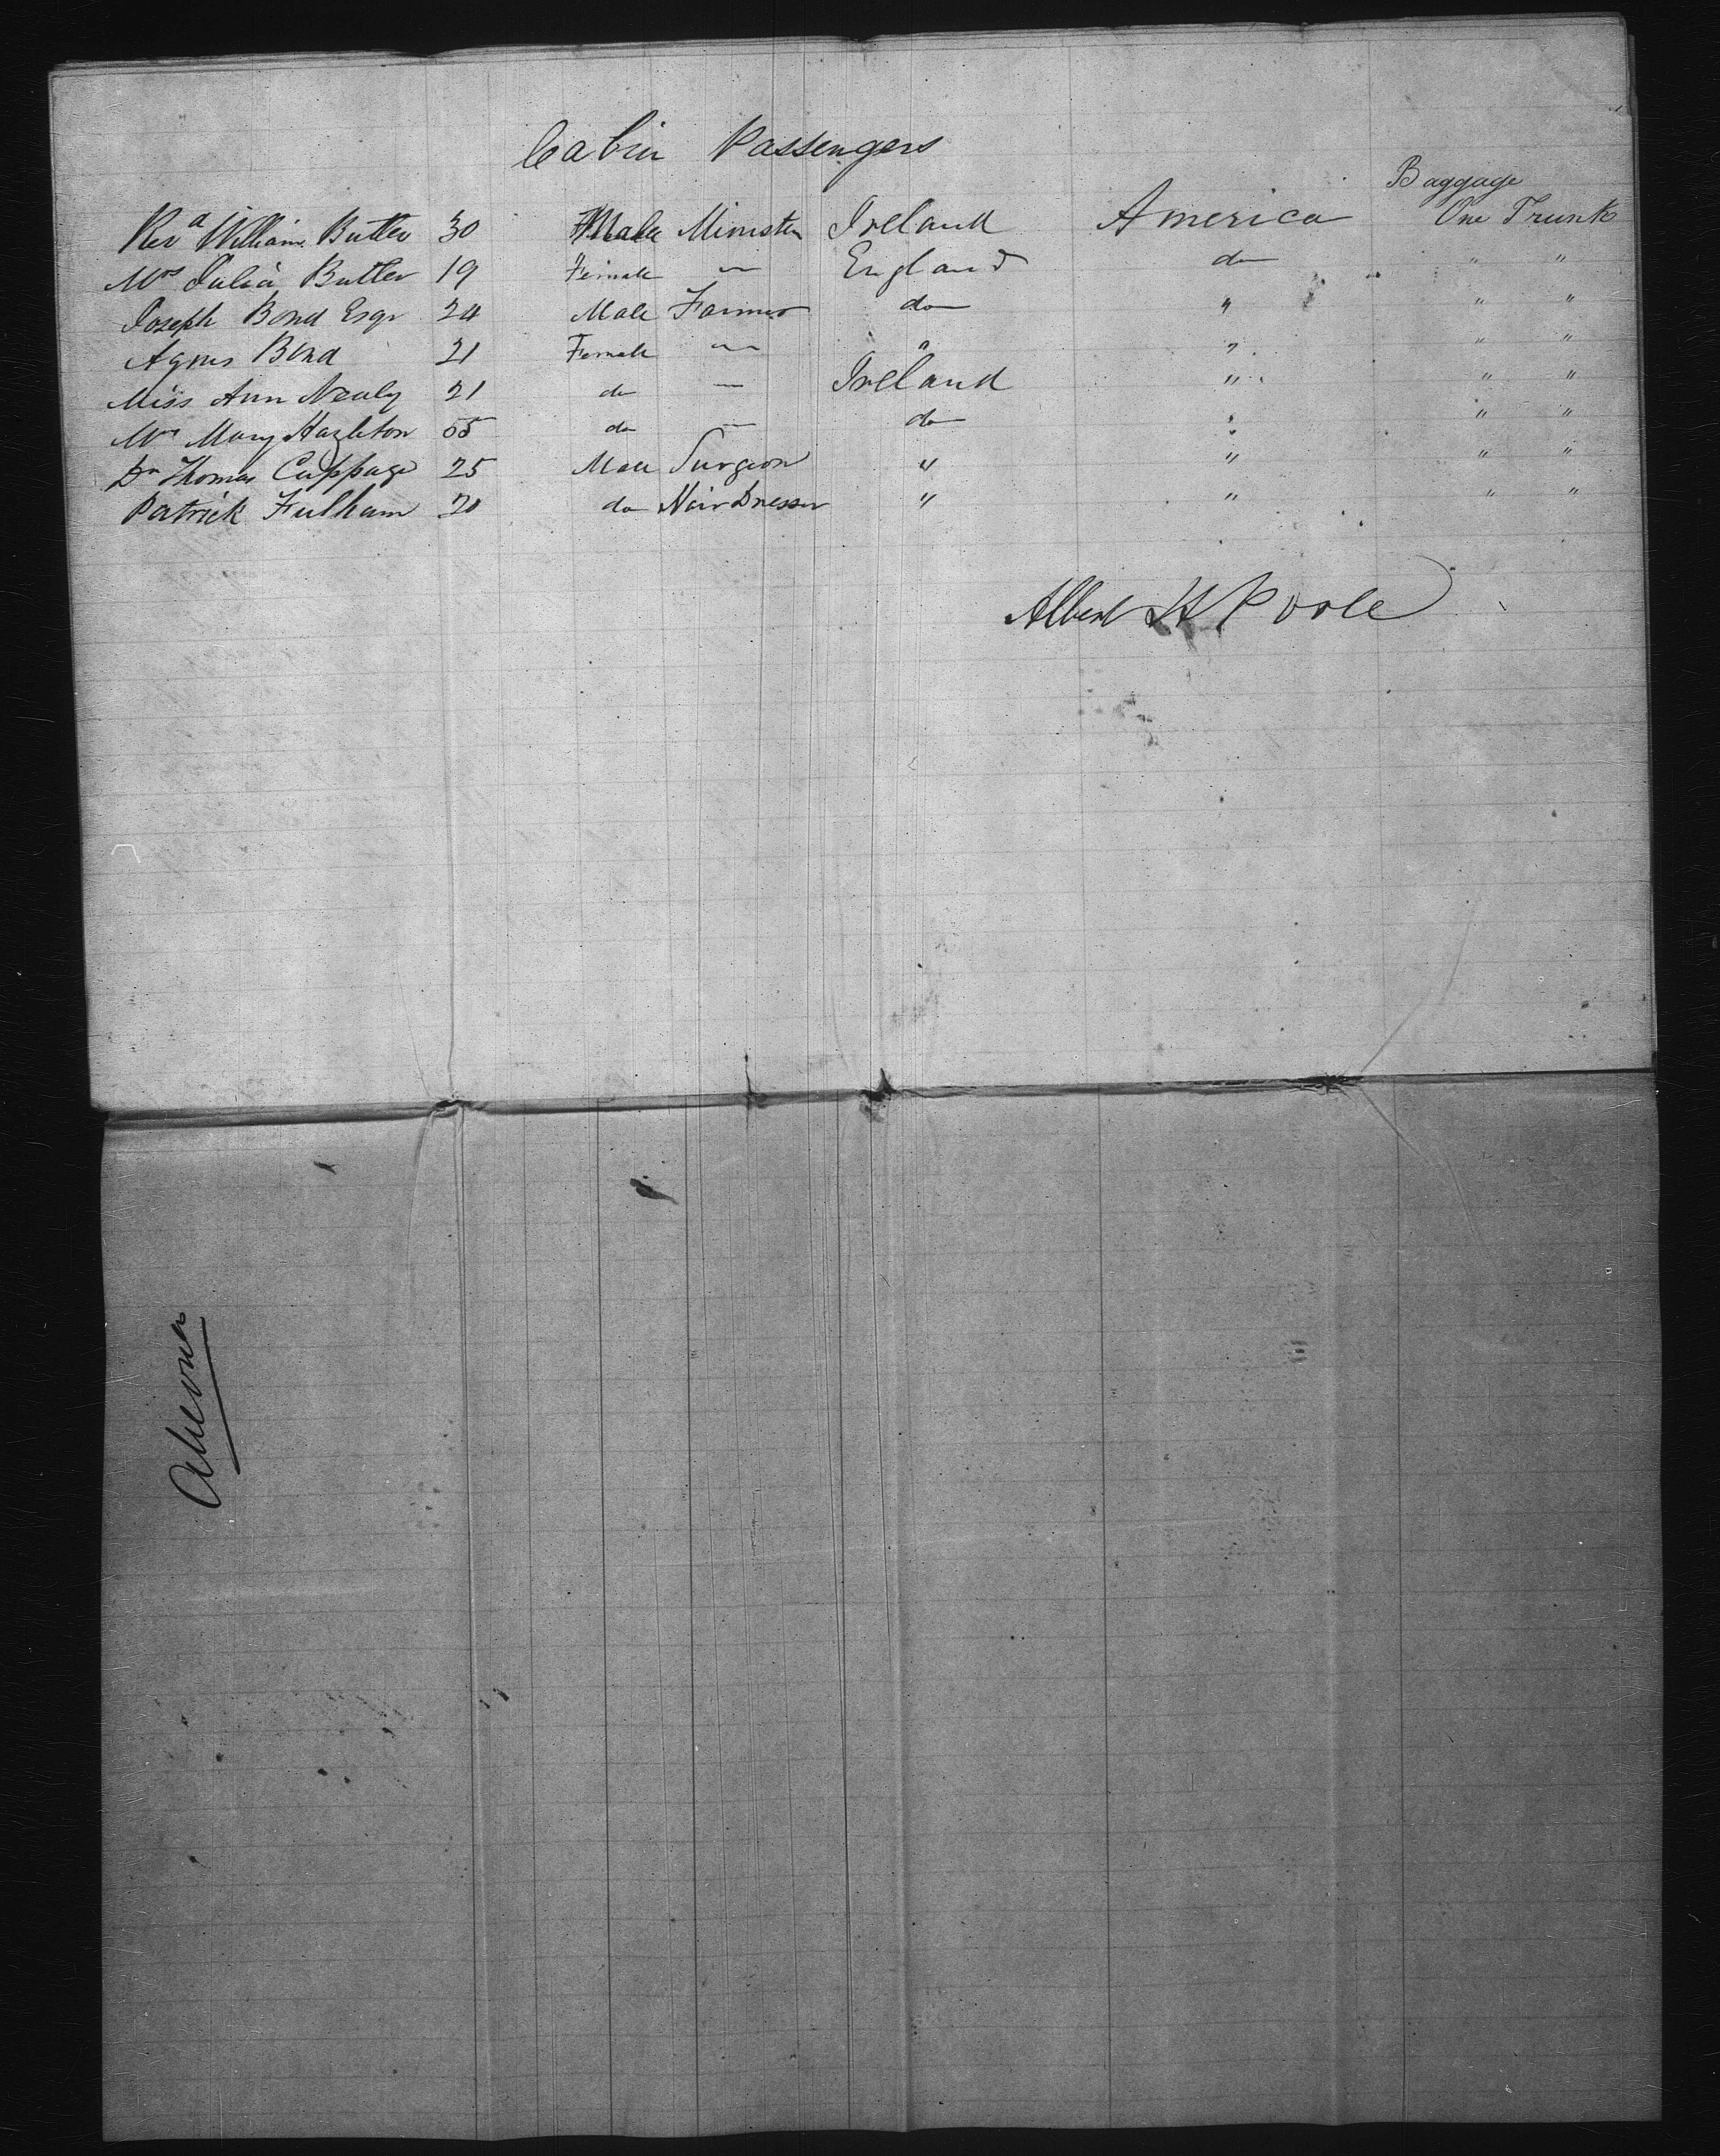 Cabin Passengers
Baggage
Revd William Butler 30 Male Minister Ireland America One Trunk
Mrs Julia Butler 19 Female " England do " "
Joseph Bond Esqr 24 Male Farmer do " " "
Agnes Bond 21 Female " " " " "
Miss Ann Nealy 21 do — Ireland " " "
Mrs Mary Hazleton 55 do — do " " "
Dr Thomas Cuppage 25 Male Surgeon " " " "
Patrick Fulham 20 do Hair Dresser " " " "
Albert H Poole